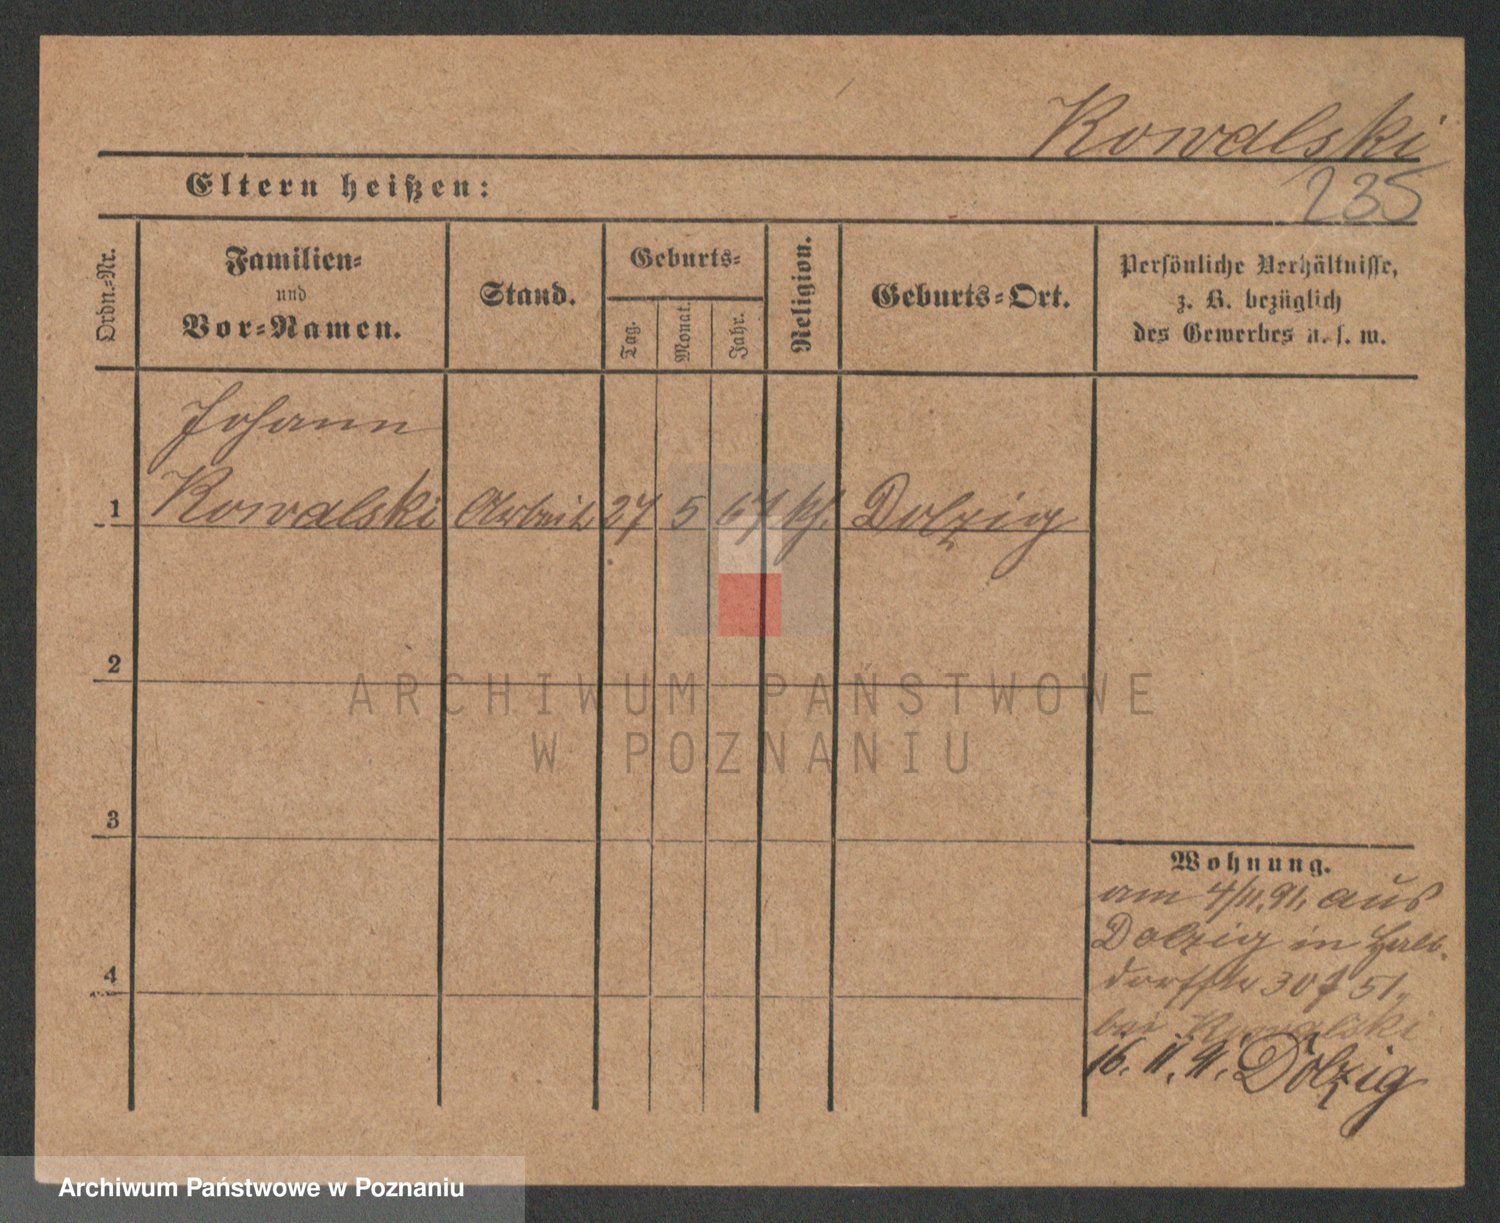 Kowalski
Eltern heißen:
235
Ordn.-Nr.
Familien-
und
Vor-Namen.
Stand.
Geburts-
Tag.
Monat.
Jahr.
Religion.
Geburts-Ort.
Persönliche Verhältnisse,
z. B. bezüglich
des Gewerbes u. s. w.
Johann
1 Kowalski Arbeit 27 5 67 kf. Dolzig
2
ARCHIWUM PAŃSTWOWE
W POZNANIU
3
Wohnung.
am 4/11.91. aus
Dolzig in Halb-
dorfstr 30 51.
bei Kowalski
4
16. 11. 91. Dolzig
Archiwum Państwowe w Poznaniu